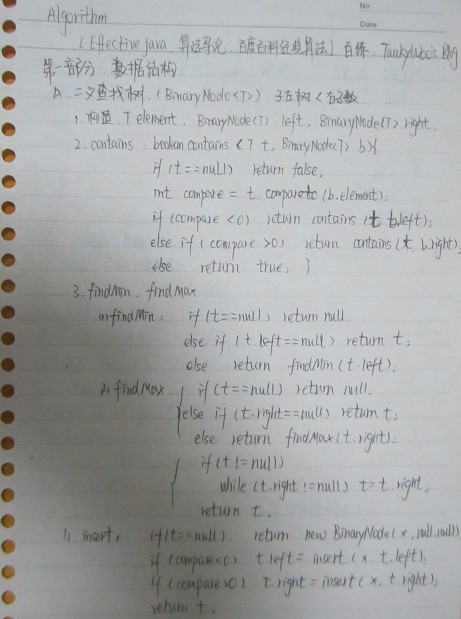 No
Algorithm
Date
[Effective java 算法导论 百度百科经典算法] 自练. Tankywoo's Blog
第一部分 数据结构
1. 二叉查找树. (BinaryNode<T>) 左子树 < 右子树
1. 构造. T element. BinaryNode<T> left. BinaryNode<T> right.
2. contains. boolean contains < T t, BinaryNode<T> b>{
if (t==null) return false,
int compare = t.compareto (b.element);
if (compare <0) return contains (t, b.left);
else if (compare >0) return contains (t, b.right),
else return true; }
3. findMin. findMax
(1) findMin. if (t==null) return null.
else if (t.left==null) return t;
else return findMin (t.left);
(2) findMax. if (t==null) return null,
else if (t.right==null) return t;
else return findMax (t.right);
if (t!=null)
while (t.right!=null) t=t.right,
return t.
4. insert. if(t==null). return new BinaryNode (x, null, null)
if (compare<0) t.left = insert (x, t.left);
if (compare>0) t.right = insert (x, t.right);
return t.